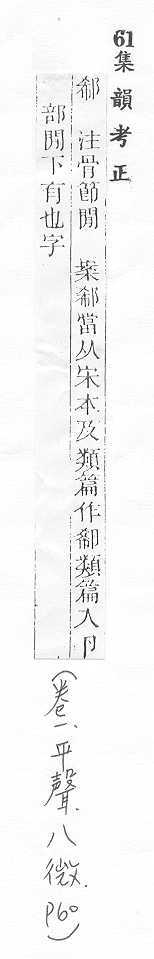 61集韻考正
郗 注骨節閒 案郗當从宋本及類篇作 類篇入卩
部閒下有也字
(卷一.平聲.八微.P60)